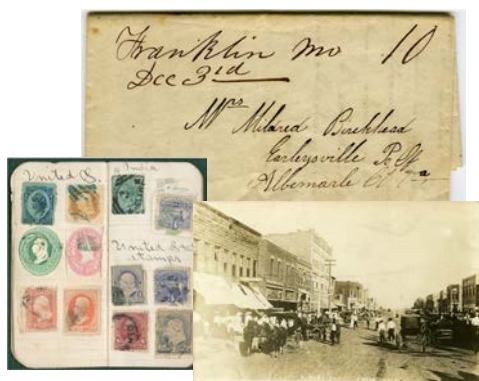 Franklin Mo 10
Dec 3rd
Mrs Mildred Birckhead
Earleysville P. Off
Albemarle Cty Va
United S.
India
United States
stamps